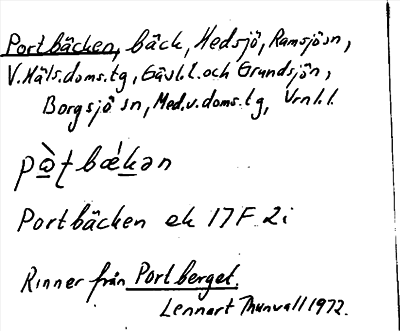 Portbäcken, bäck, Hedsjö, Ramsjö sn,
V. Häls. doms. tg, Gävl. l. och Grundsjön,
Borgsjö sn, Med. v. doms. tg, Vrnl. l.
pò̱ṭbæ̀ḵən
Portbäcken ek 17 F 2i
Rinner från Portberget.
Lennart Thunvall 1972.